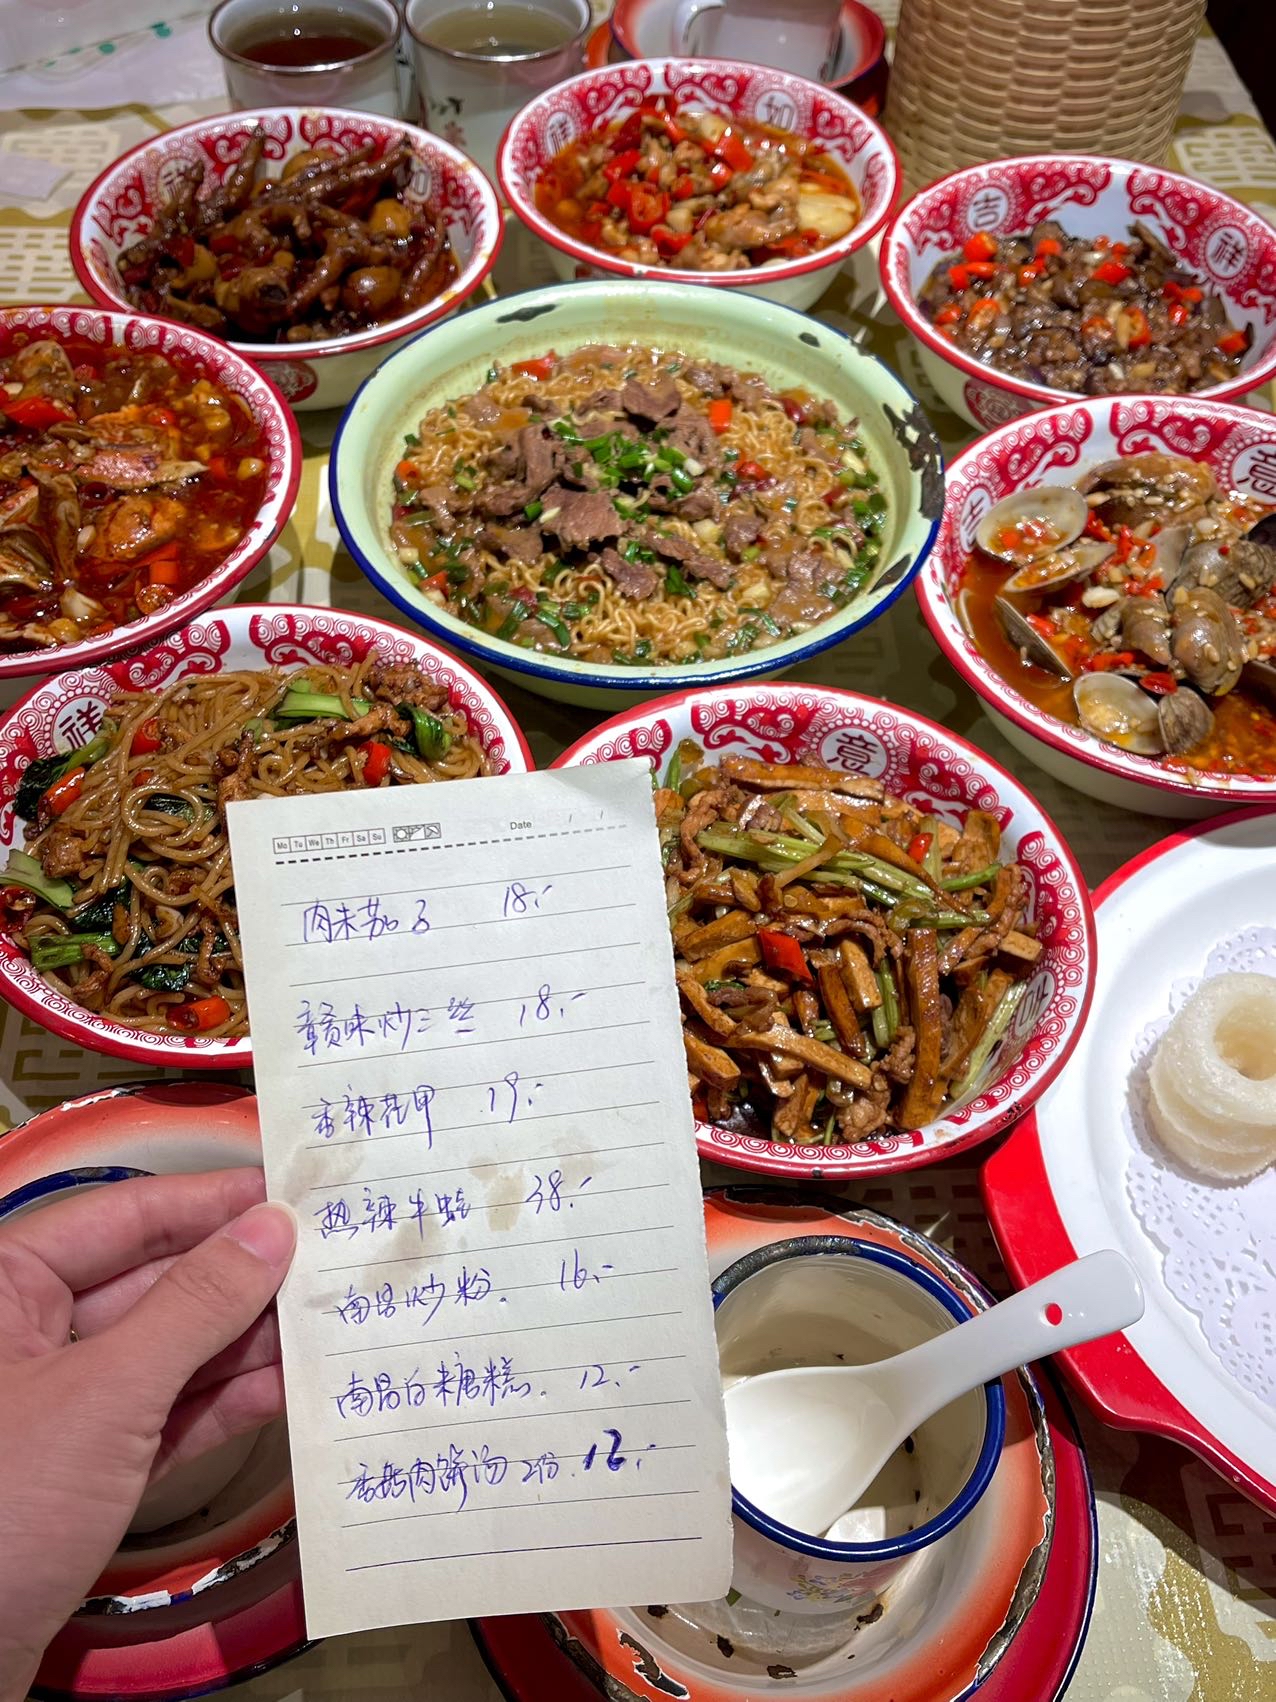 祥
如
吉
祥
意
吉
祥
意
Mo Tu We Th Fr Sa Su
Date / /
肉末茄子 18.-
赣味炒三丝 18.-
香辣花甲 19.-
热辣牛蛙 38.-
南昌炒粉. 16.-
南昌白糖糕. 12.-
香菇肉饼汤 2份. 12.-